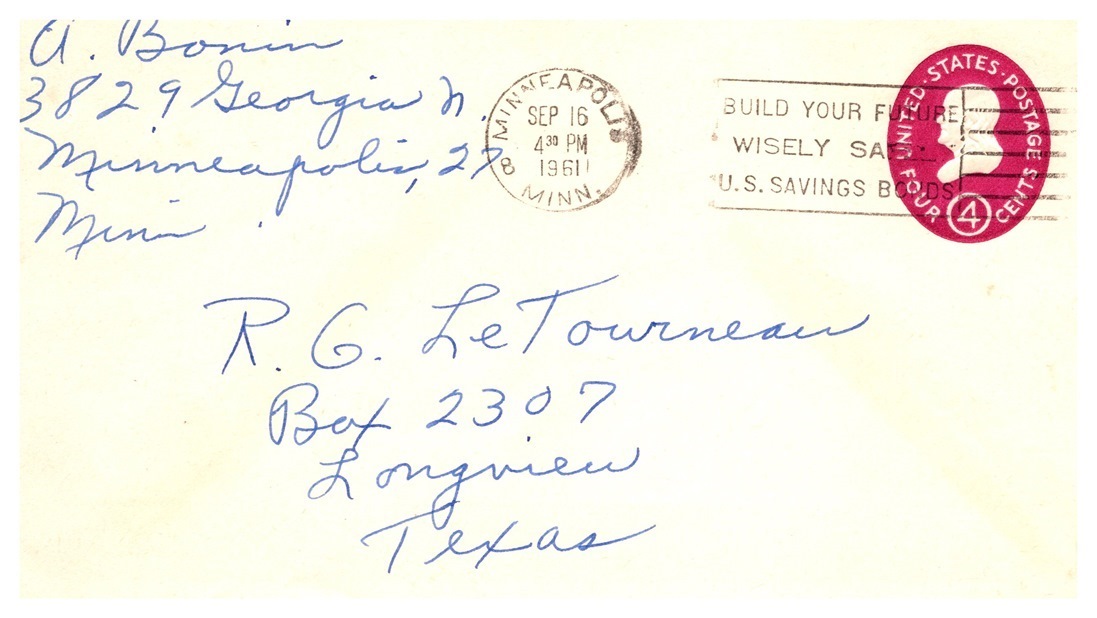 A. Bonin
3829 Georgia N.
Minneapolis, 27
Minn
MINNEAPOLIS
SEP 16
4 30 PM
1961
8
MINN.
BUILD YOUR FUTURE
WISELY
U.S. SAVINGS BONDS
UNITED · STATES · POSTAGE
FOUR 4 CENTS
R. G. LeTourneau
Box 2307
Longview
Texas